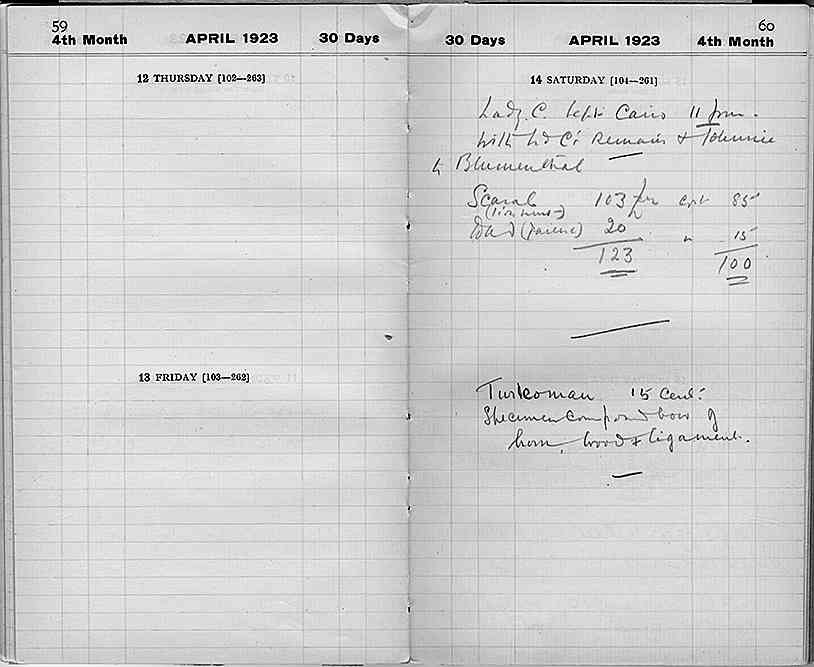 59
4th Month APRIL 1923 30 Days
12 THURSDAY [102—263]
13 FRIDAY [103—262]
60
30 Days APRIL 1923 4th Month
14 SATURDAY [104—261]
Lady C. left Cairo 11
with Ld C's Remains & Johnnie
Blumenthal
Scarab 103 85
20 " 15
123 100
Turkoman 15 Cent:
Specimen compound bow of
horn, wood & ligament.